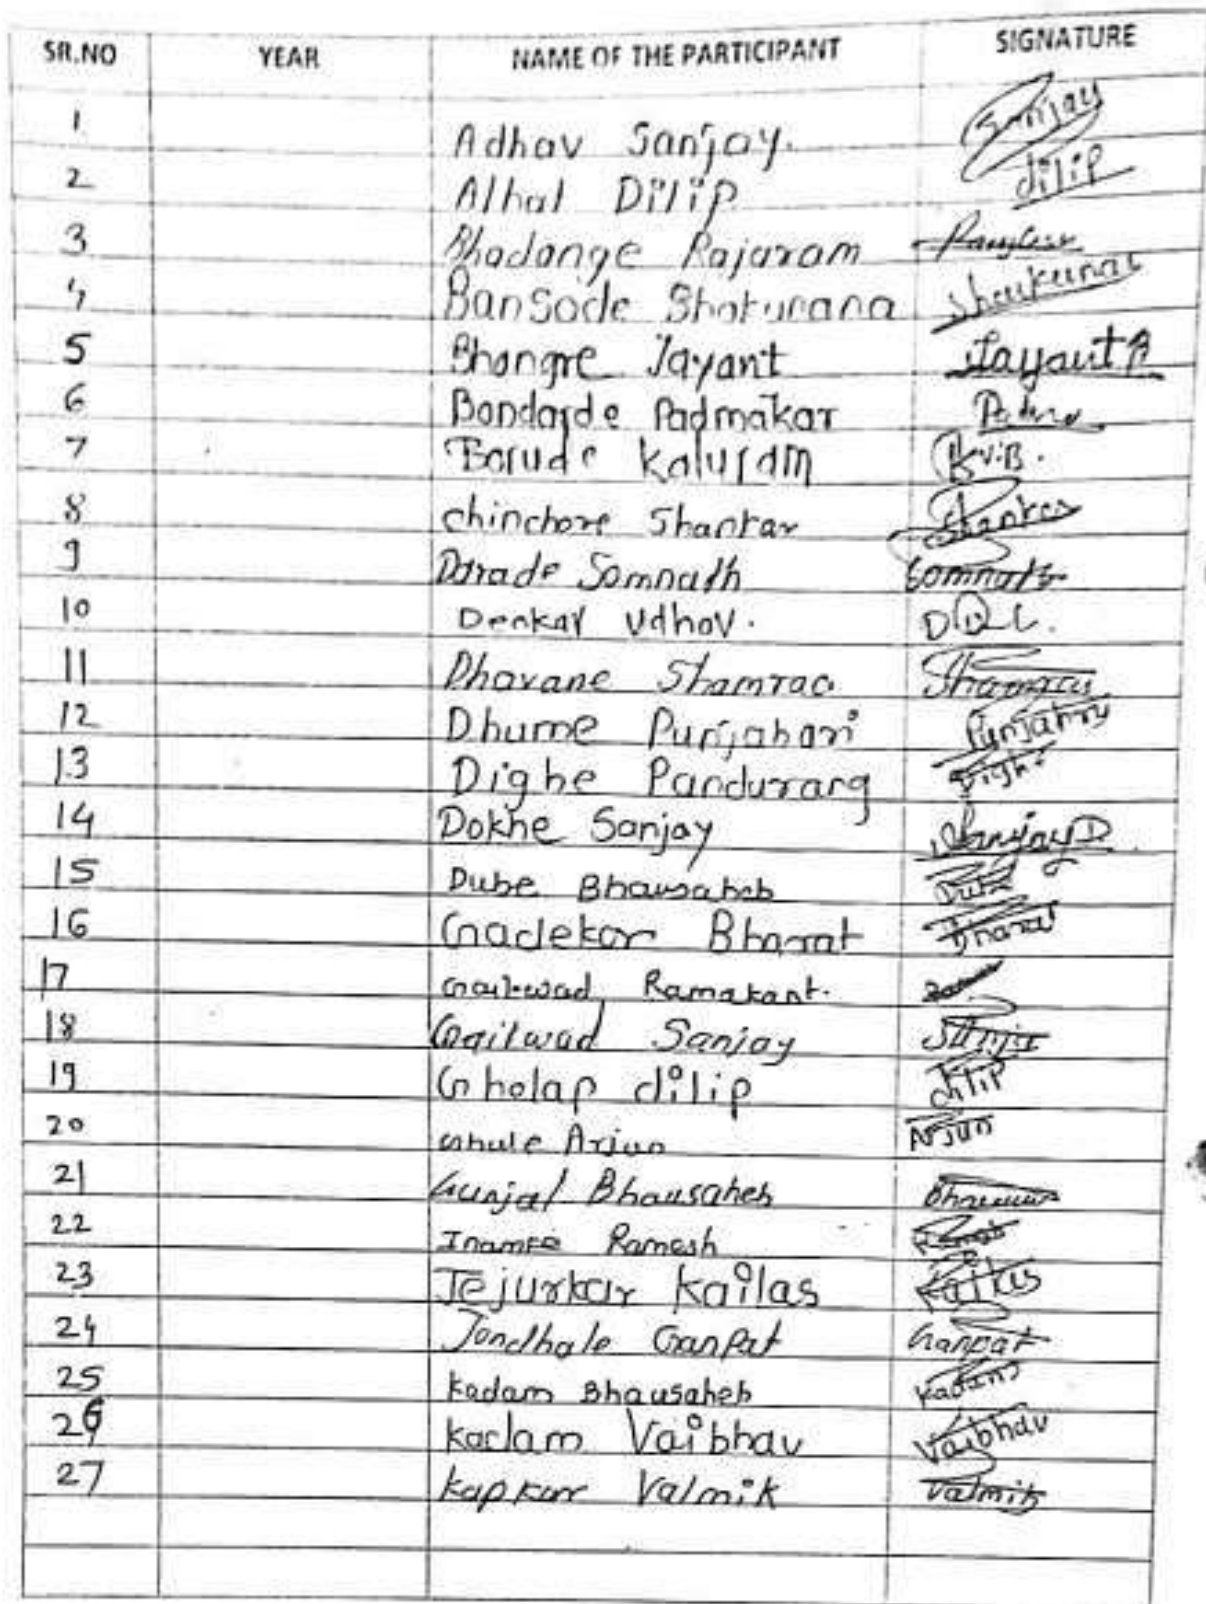 SR.NO YEAR NAME OF THE PARTICIPANT SIGNATURE
1 Adhav Sanjay. Sanjay
2 Alhat Dilip dilip
3 Bhadange Rajaram
4 Bansode
5 Bhangre Jayant Jayant
6 Padmakar
7 Borude Kaluram K.V.B.
8 chinchore Shankar Shankar
9 Darade Somnath Somnath
10 Denkar Udhav.
11 Dhavane Shamrao
12 Dhume Punjahari
13 Dighe Pandurang Dighe
14 Dokhe Sanjay Sanjay D
15 Dube Bhausaheb Dube
16 Gadekar Bharat Bharat
17 Gaikwad Ramakant.
18 Gaikwad Sanjay
19 Gholap dilip dilip
20 Ghule Arjun Arjun
21 Gunjal Bhausaheb
22 Ramesh
23 Tejurkar Kailas
24 Jondhale Ganpat Ganpat
25 Kadam Bhausaheb Kadam
26 Kadam Vaibhav Vaibhav
27 Kapkar Valmik Valmik